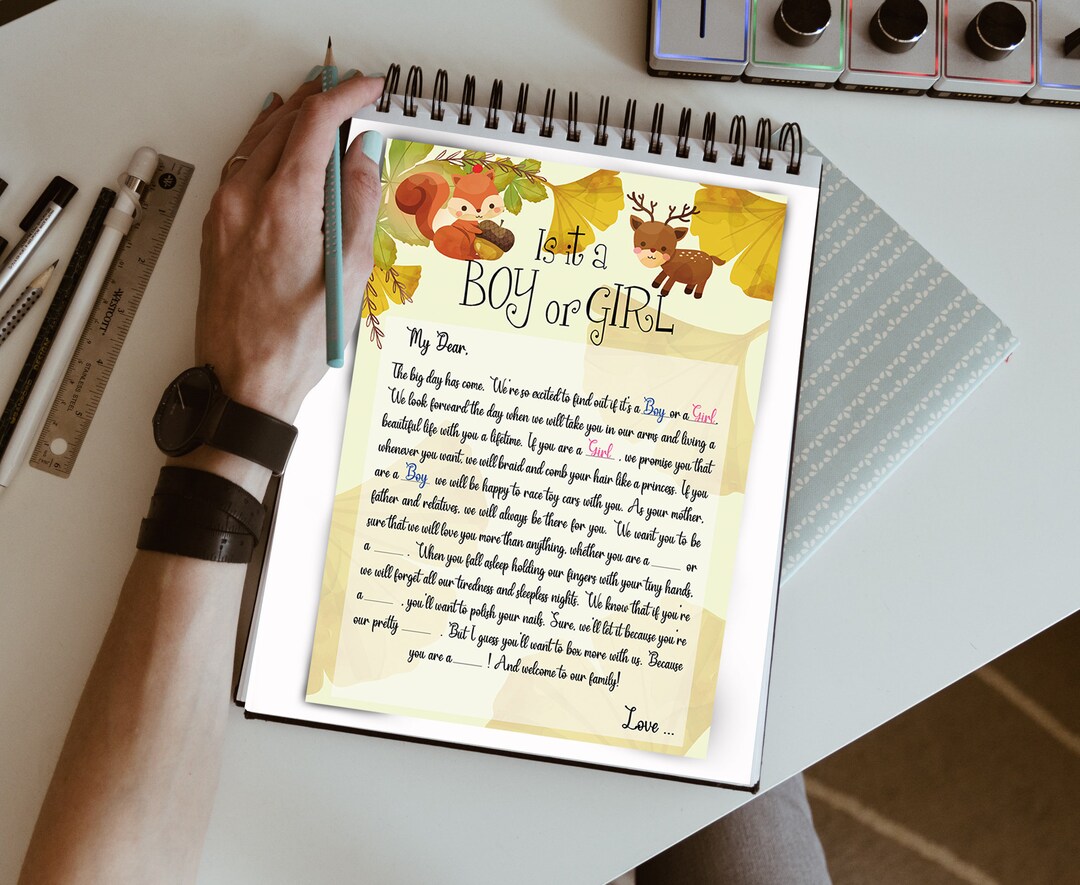 Is it a
BOY or GIRL
My Dear,
The big day has come. We're so excited to find out if it's a Boy or a Girl.
We look forward the day when we will take you in our arms and living a
beautiful life with you a lifetime. If you are a Girl , we promise you that
whenever you want, we will braid and comb your hair like a princess. If you
are a Boy we will be happy to race toy cars with you. As your mother,
father and relatives, we will always be there for you. We want you to be
sure that we will love you more than anything, whether you are a ____ or
a ____ . When you fall asleep holding our fingers with your tiny hands,
we will forget all our tiredness and sleepless nights. We know that if you're
a ____ , you'll want to polish your nails. Sure, we'll let it because you're
our pretty ____ . But I guess you'll want to box more with us. Because
you are a ____ ! And welcome to our family!
Love ...
WESTCOTT
STAINLESS STEEL
1
2
3
4
5
6